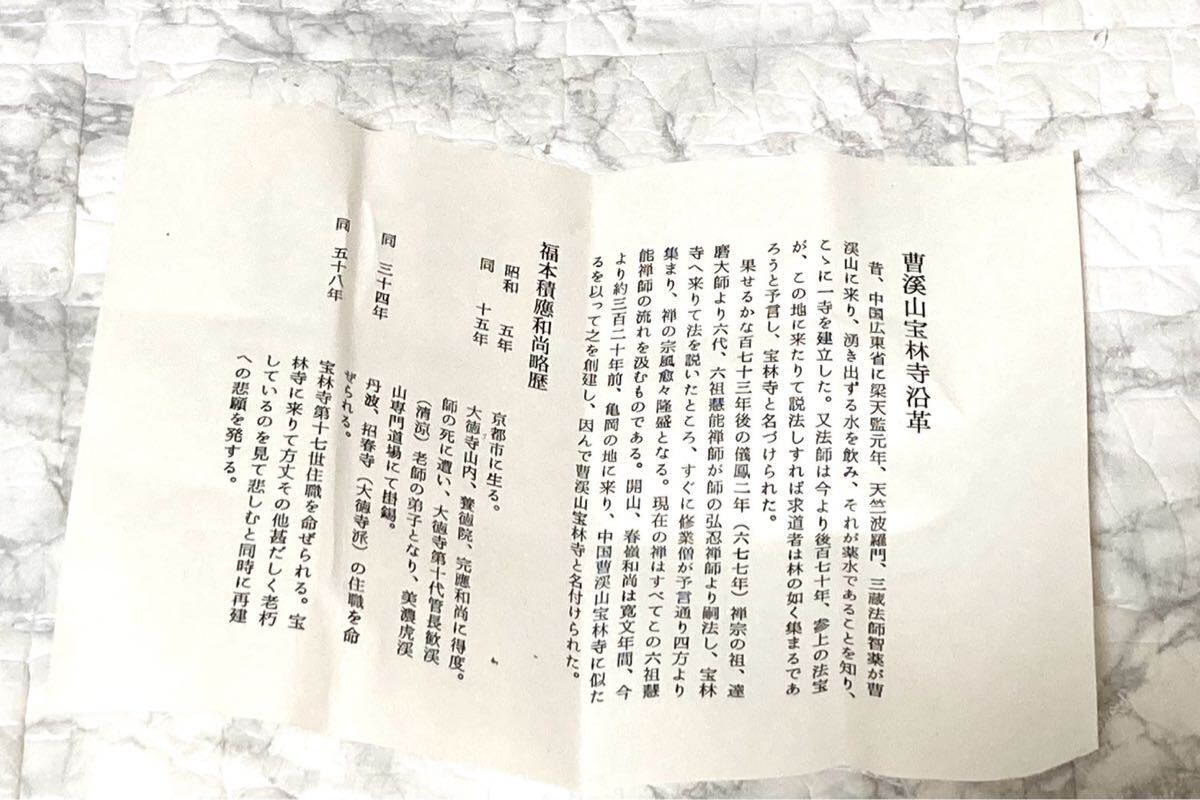 曹溪山宝林寺沿革
昔、中国広東省に梁天監元年、天竺波羅門、三蔵法師智薬が曹
溪山に来り、湧き出ずる水を飲み、それが薬水であることを知り、
こゝに一寺を建立した。又法師は今より後百七十年、無上の法宝
が、この地に来たりて説法しすれば求道者は林の如く集まるであ
ろうと予言し、宝林寺と名づけられた。
果せるかな百七十三年後の儀鳳二年（六七七年）禅宗の祖、達
磨大師より六代、六祖慧能禅師が師の弘忍禅師より嗣法し、宝林
寺へ来りて法を説いたところ、すぐに修業僧が予言通り四方より
集まり、禅の宗風愈々隆盛となる。現在の禅はすべてこの六祖慧
能禅師の流れを汲むものである。開山、春嶺和尚は寛文年間、今
より約三百二十年前、亀岡の地に来り、中国曹溪山宝林寺に似た
るを以って之を創建し、因んで曹溪山宝林寺と名付けられた。
福本積應和尚略歴
昭和　五年　京都市に生る。
同　十五年　大徳寺山内、養徳院、完應和尚に得度。
師の死に遭い、大徳寺第十代管長歓溪
（清涼）老師の弟子となり、美濃虎溪
山専門道場にて掛錫。
同　三十四年　丹波、招春寺（大徳寺派）の住職を命
ぜられる。
同　五十八年　宝林寺第十七世住職を命ぜられる。宝
林寺に来りて方丈その他甚だしく老朽
しているのを見て悲しむと同時に再建
への悲願を発する。